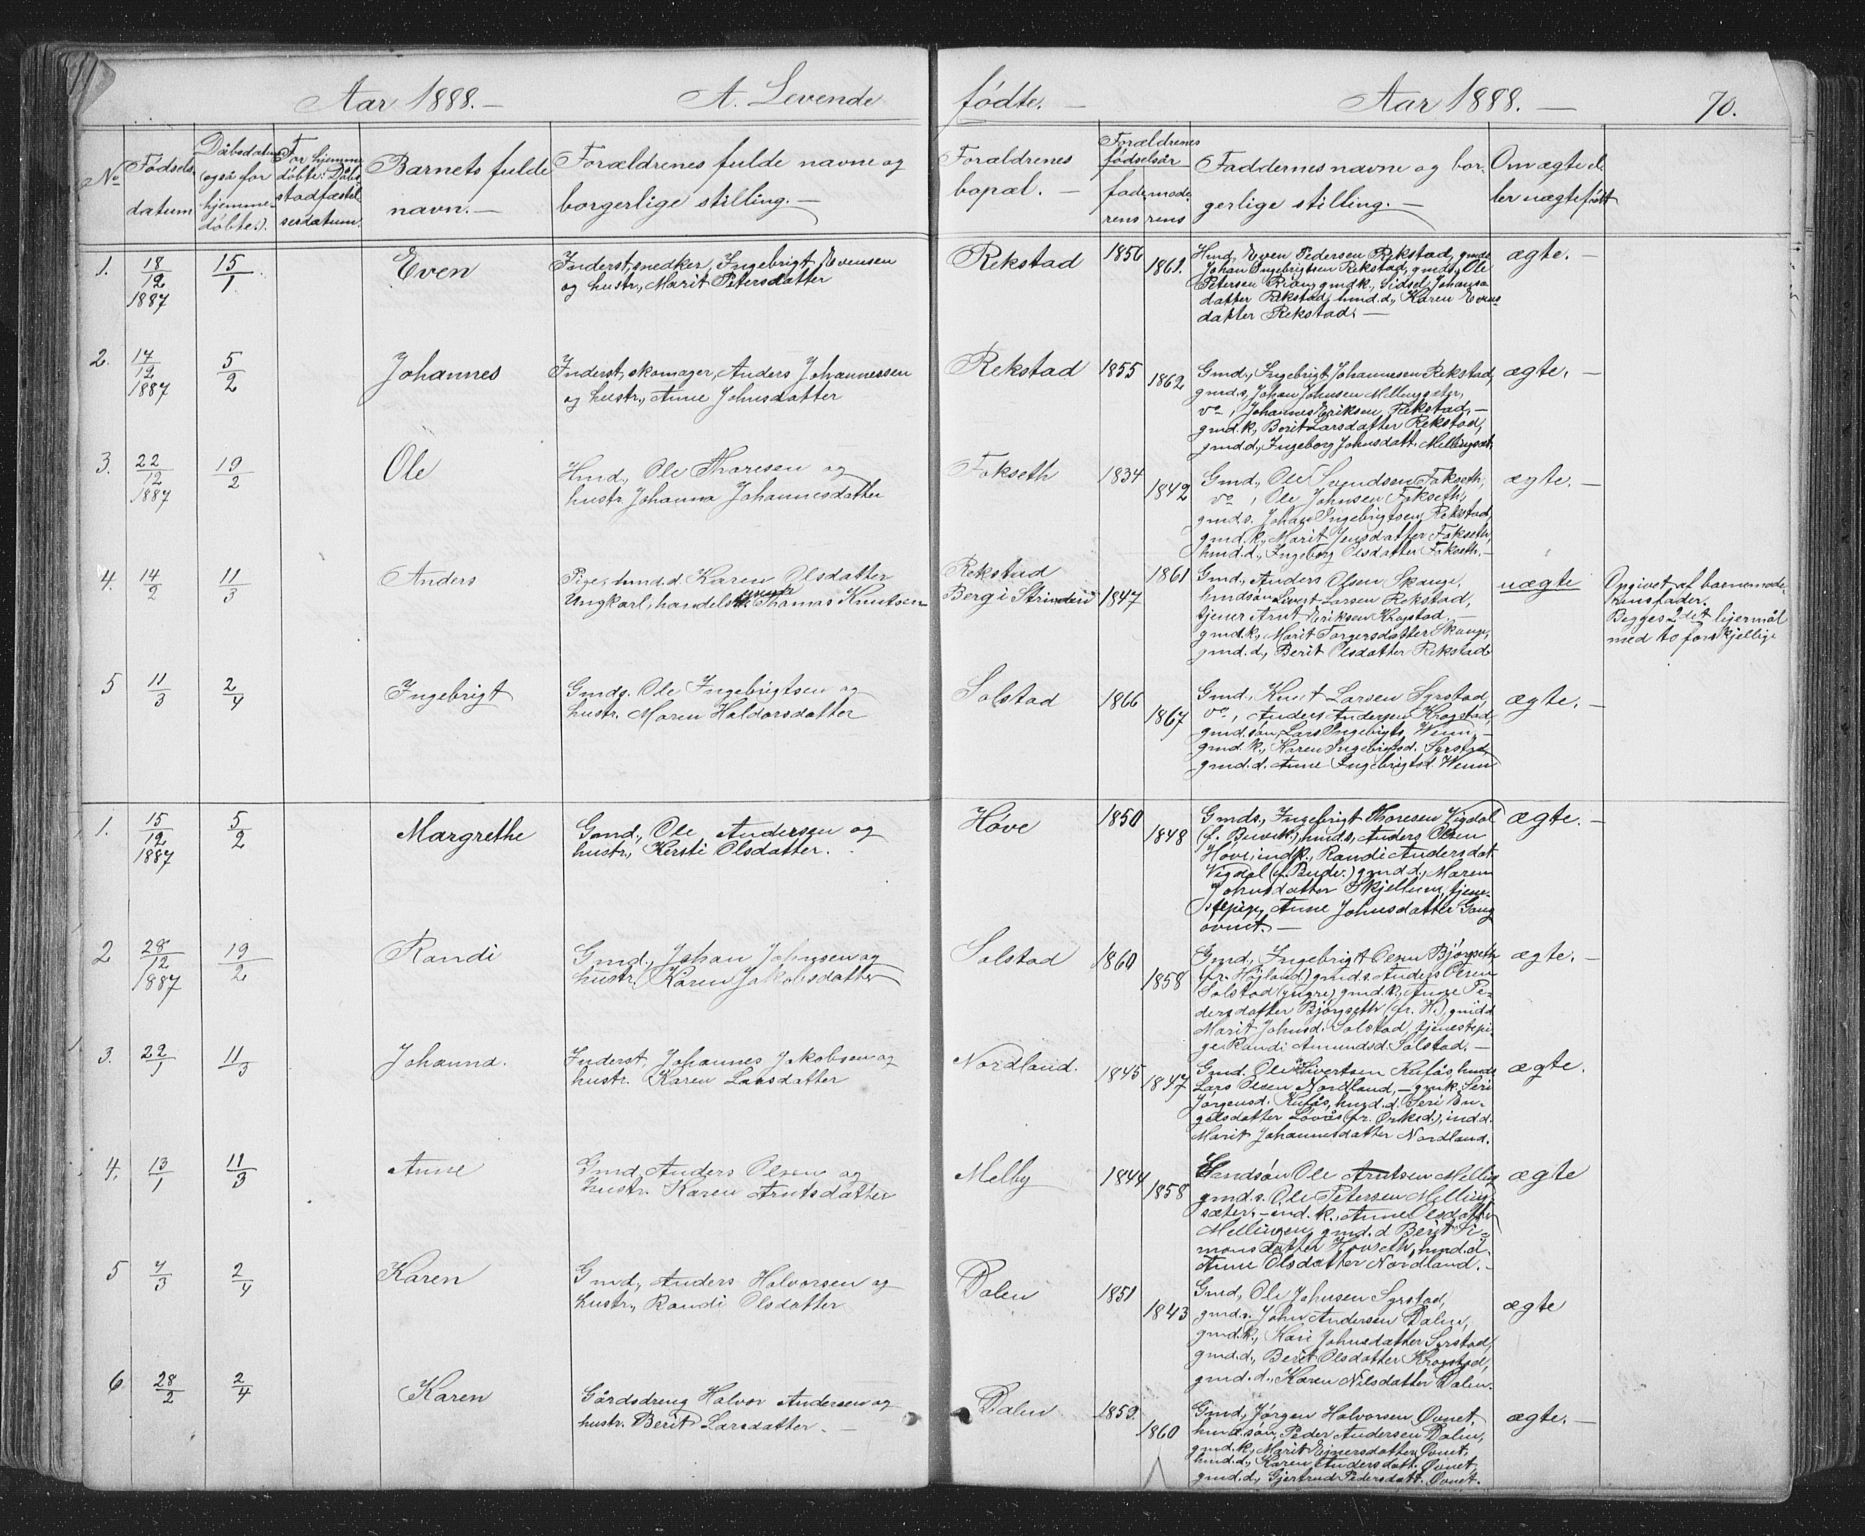 Aar 1888. — A. Levende fødte. — Aar 1888. — 70.
No
Fødsels datum
Dåbsdatum (også for hjemme- døbte).
For hjemme døbte: Dåbs stadfæstel sesdatum.
Barnets fulde navn. —
Forældrenes fulde navne og borgerlige stilling. —
Forældrenes bopæl. —
Forældrenes fødselsår
fade rens
mode rens
Faddernes navne og bor- gerlige stilling. —
Om ægte el ler uægte født
1. 18/12 1887 15/1 Even
Inderst, snedker, Ingebrigt Evensen
og hustr., Marit Petersdatter
Rekstad 1856 1861.
Hmd, Even Pedersen Rekstad, gmds
Johan Ingebrigtsen Rekstad, gmds, Ole
Petersen gmdk., Sidsel Johans
datter Rekstad, hmd.d., Karen Evens
datter Rekstad. —
ægte. —
2. 17/12 1887 5/2 Johannes
Inderst, skomager, Anders Johannessen
og hustr., Anne Johnsdatter
Rekstad 1855 1862
Gmd., Ingebrigt Johannesen Rekstad,
gmds, Johan Johnsen
vo, Johannes Eriksen Rekstad, —
gmd.k., Berit Larsdatter Rekstad,
gmd.d., Ingeborg Johnsdatt.
ægte. —
3. 22/12 1887 19/2 Ole
Hmd., Ole Thoresen og
hustr. Johanna Johannesdatter
Fokseth 1834 1842
Gmd., Ole Svendsen Fokseth,
vo, Ole Johnsen Fokseth,
gmds. Johan Ingebrigtsen Rekstad,
gmd.k., Marit Jensdatter Fokseth,
hmd.d., Ingeborg Olsdatter Fokseth. —
ægte. —
4. 14/2 11/3 Anders
Pige, hmd.d. Karen Olsdatter
Ungkarl, handels Thomas Knutsen
Rekstad
Berg i Strinden 1847 1861
Gmd., Anders Olsen Skauge,
hmdsøn Larsen Rekstad,
tjener Arnt Eriksen Krogstad. —
gmd.k., Marit Torgersdatter Skauge,
gmd.d., Berit Olsdatter Rekstad
uægte
Opgivet af barnemode
ren fader.
Begges 2det lejermål
med to forskjellige
5 11/3 2/4 Ingebrigt
Gmds. Ole Ingebrigtsen og
hustr. Maren Haldorsdatter
Solstad 1866 1867
Gmd. Knut Larsen Syrstad,
vo, Anders Andersen Krogstad,
gmd.søn, Lars Ingebrigts. Wenn, —
gmd.k., Karen Ingebrigtsd. Syrstad,
gmd.d. Anne Ingebrigtsd. Wenn
ægte. —
1. 15/12 1887 5/2 Margrethe
Gmd., Ole Andersen og
hustr., Kersti Olsdatter.
Hove 1850 1848
Gmds., Ingebrigt Thoresen Vigdal
hmds, Anders Olsen
Hove, indk., Randi Andersdat
Vigdal gmd.d., Maren
Johnsdatter Skjellum, tjene-
stepige, Anne Johnsdatter Gang
ovnet. —
ægte. —
2 28/12 1887 19/2 Randi
Gmd., Johan Johnsen og
hustr. Karen Jakobsdatter
Solstad 1860 1858
Gmd., Ingebrigt Olsen Bjørgseth
(fr. Højland) gmds. Anders Olsen
Solstad (yngre) gmd.k., Anne Pe-
dersdatter Bjørgseth (fr. H.), gmd.d
Marit Johnsd. Solstad, tjenestepi-
ge Randi Amundsd. Solstad. —
ægte. —
3. 22/1 11/3 Johanna.
Inderst Johannes Jakobsen og
hustr. Karen Larsdatter
Nordland. 1845 1847
Gmd. Ole Sivertsen Kufås, hmds
Lars Olsen Nordland, — gmk, Seri
Jørgensd. Kufås, hmd.d. Seri En-
gelsdatter Lovås (fr. Orked.), ind.d.
Marit Johannesdatter Nordland.
ægte.
4. 13/1 11/3 Anne
Gmd, Anders Olsen og
hustr. Karen Arntsdatter
Melby 1844 1858
Ole Arntsen
gmd.s. Ole Petersen Melling-
sæter. — ind.k., Anne Olsdatter
Mellingen, gmd.d Berit Si-
monsdatter Hovseth, hmd.d.
Anne Olsdatter Nordland. —
ægte
5 7/3 2/4 Karen
Gmd., Anders Halvorsen og
hustr., Randi Olsdatter
Dalen 1851 1843
Gmd, Ole Johnsen Syrstad,
gmds. John Andersen Dalen,
gmd.k., Kari Johnsdatter Syrstad,
gmd.d., Berit Olsdatter Krogstad,
gmd.d., Karen Nilsdatter Dalen.
ægte
6 28/2 2/4 Karen
Gårdsdreng Halvor Andersen og
hustr. Berit Larsdatter. —
Dalen 1859. 1860
Gmd, Jørgen Halvorsen Øvnet,
hmd.søn, Peder Andersen Dalen,
gmd.k., Marit Ejnersdatter Øvnet,
hmd.d., Karen Andersdatt. Øvnet,
gmd.d., Gjertrud Pedersdatt. Øvnet.
ægte. —